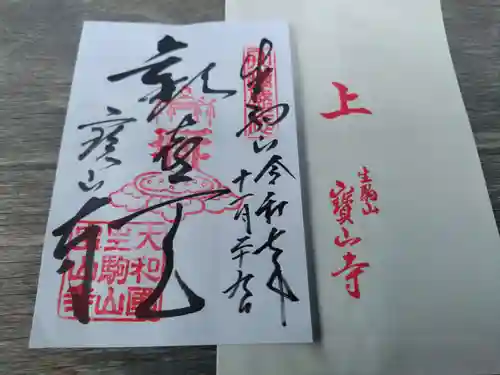 上
生駒山
寳山寺
生駒山 令和七年
十一月二十九日
歓喜天
寳山寺
大和國
生駒山
寳山寺